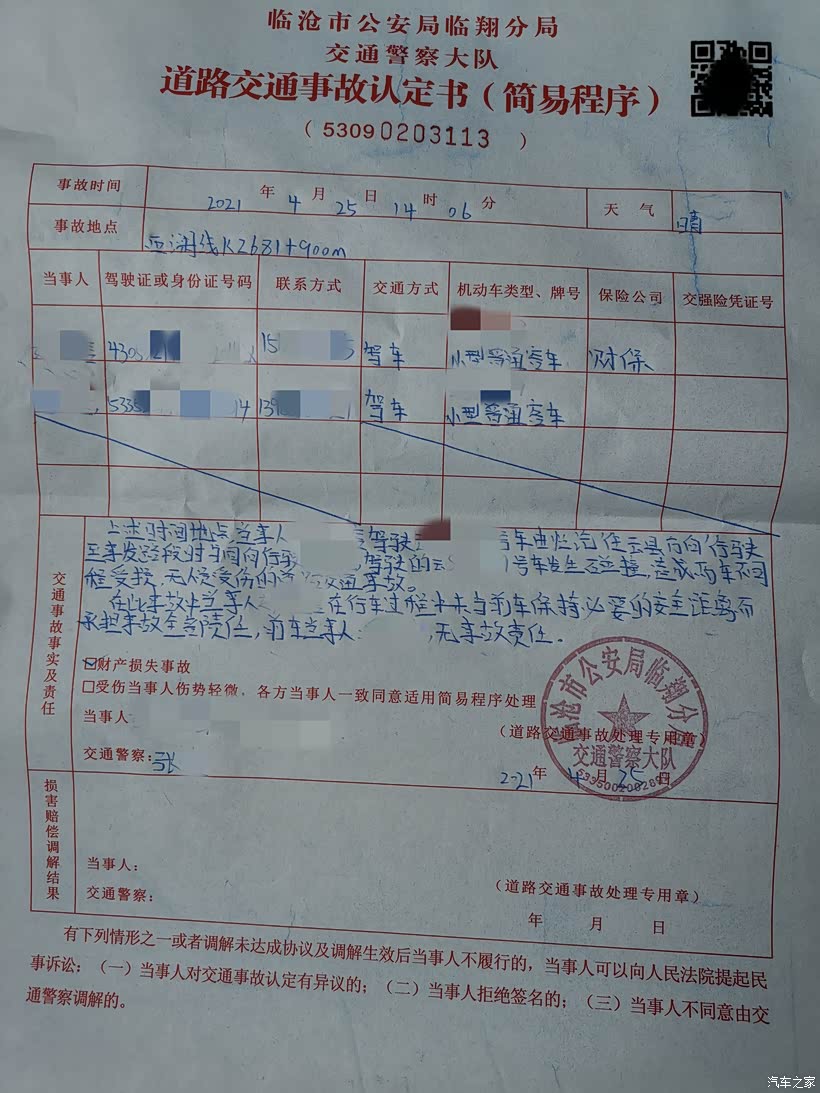 临沧市公安局临翔分局
交通警察大队
道路交通事故认定书（简易程序）
（53090203113）
事故时间 2021 年 4 月 25 日 14 时 06 分 天气 晴
事故地点 K2681+900m
当事人 驾驶证或身份证号码 联系方式 交通方式 机动车类型、牌号 保险公司 交强险凭证号
430 15 5 驾车 小型普通客车 财保
533 14 139 21 驾车 小型普通客车
交通事故事实及责任
上述时间地点当事人 驾驶 号车由 往云县方向行驶
至事发路段时与同向行驶 驾驶的云 号车发生碰撞，造成两车不同
程度受损，无人员受伤的 交通事故。
在此事故中当事人 在行车过程中未与前车保持必要的安全距离而
承担事故全部责任，前车当事人 ，无事故责任。
☑财产损失事故
□受伤当事人伤势轻微，各方当事人一致同意适用简易程序处理
当事人
（道路交通事故处理专用章）
交通警察：张
2021 年 4 月 25 日
临沧市公安局临翔分局
交通警察大队
损害赔偿调解结果
当事人：
交通警察：
（道路交通事故处理专用章）
年 月 日
有下列情形之一或者调解未达成协议及调解生效后当事人不履行的，当事人可以向人民法院提起民
事诉讼：（一）当事人对交通事故认定有异议的；（二）当事人拒绝签名的；（三）当事人不同意由交
通警察调解的。
汽车之家